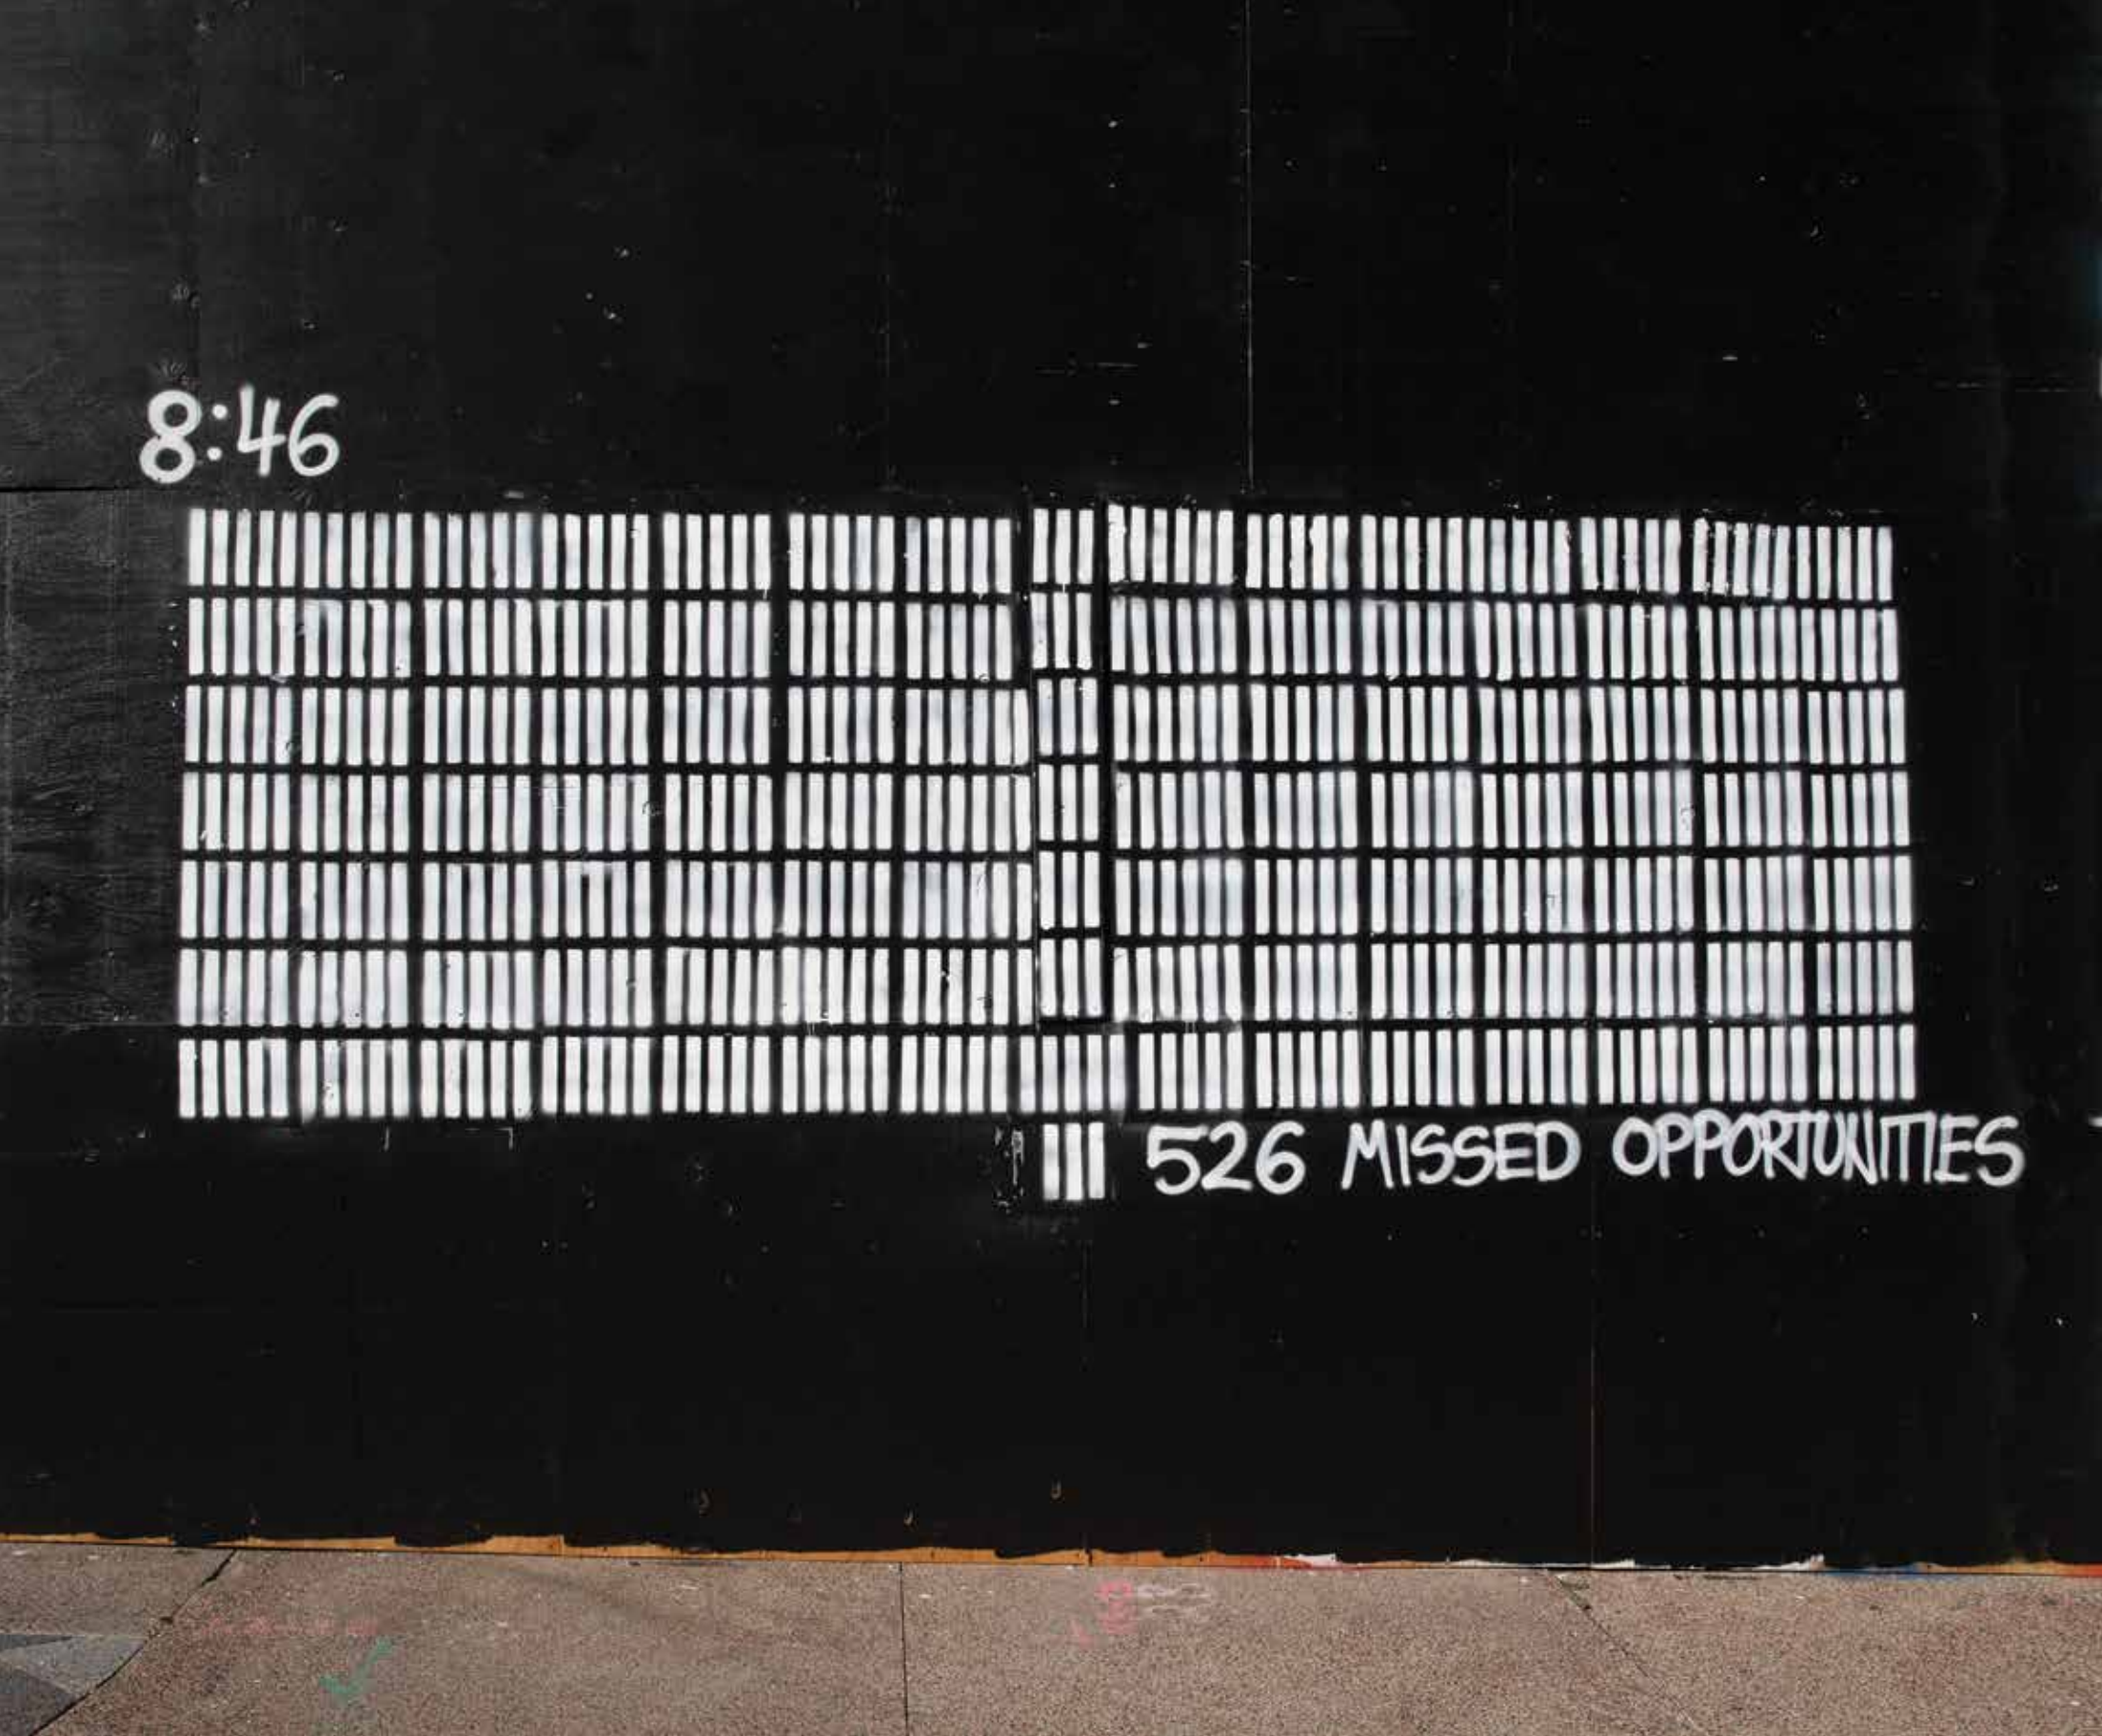 8:46
526 MISSED OPPORTUNITIES